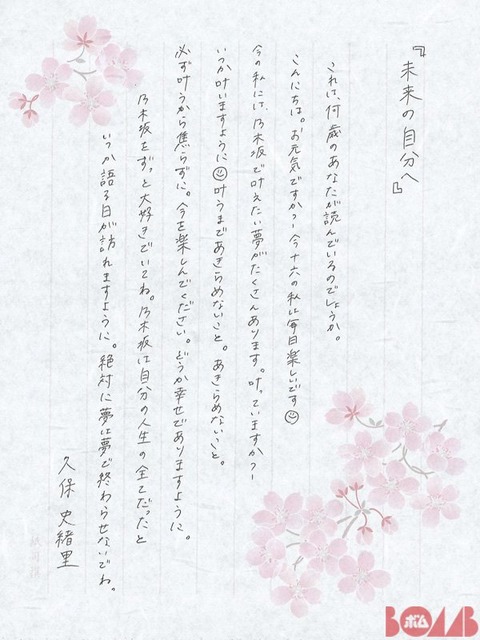 『未来の自分へ』
これは、何歳のあなたが読んでいるのでしょうか。
こんにちは。お元気ですか？今十六の私は毎日楽しいです
今の私には、乃木坂で叶えたい夢がたくさんあります。叶っていますか？
いつか叶いますように叶うまであきらめないこと。あきらめないこと。
必ず叶うから焦らずに。今を楽しんでください。どうか幸せでありますように。
乃木坂をずっと大好きでいてね。乃木坂は自分の人生の全てだったと
いつか語る日が訪れますように。絶対に夢は夢で終わらせないでね。
久保史緒里
BOMB
ボム